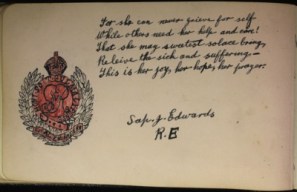 For she can never grieve for self
While others need her help and care!
That she may sweetest solace bring,
Releive the sick and suffering –
This is her joy, her hope, her prayer.
Sap. J. Edwards
R.E